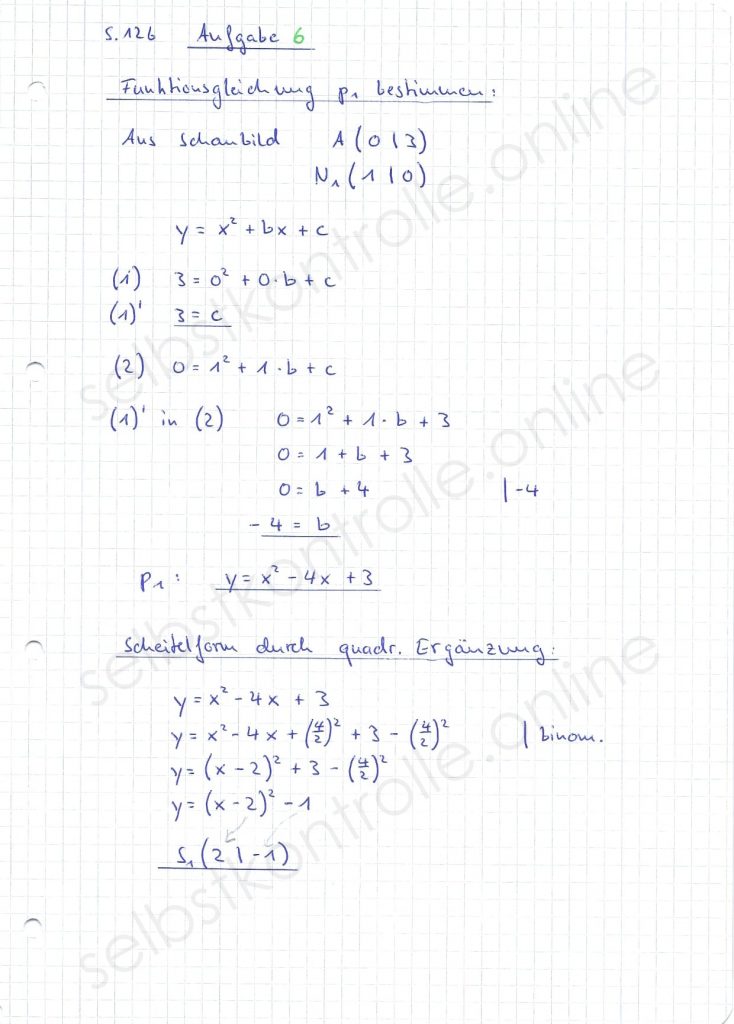 S.126 Aufgabe 6
Funktionsgleichung p₁ bestimmen:
Aus Schaubild A(0|3)
N₁(1|0)
y = x² + bx + c
(1) 3 = 0² + 0·b + c
(1)' 3 = c
(2) 0 = 1² + 1·b + c
(1)' in (2) 0 = 1² + 1·b + 3
0 = 1 + b + 3
0 = b + 4 |-4
-4 = b
P₁: y = x² - 4x + 3
Scheitelform durch quadr. Ergänzung:
y = x² - 4x + 3
y = x² - 4x + (4/2)² + 3 - (4/2)² | binom.
y = (x - 2)² + 3 - (4/2)²
y = (x - 2)² - 1
S₁(2|-1)
selbstkontrolle.online
selbstkontrolle.online
selbstkontrolle.online